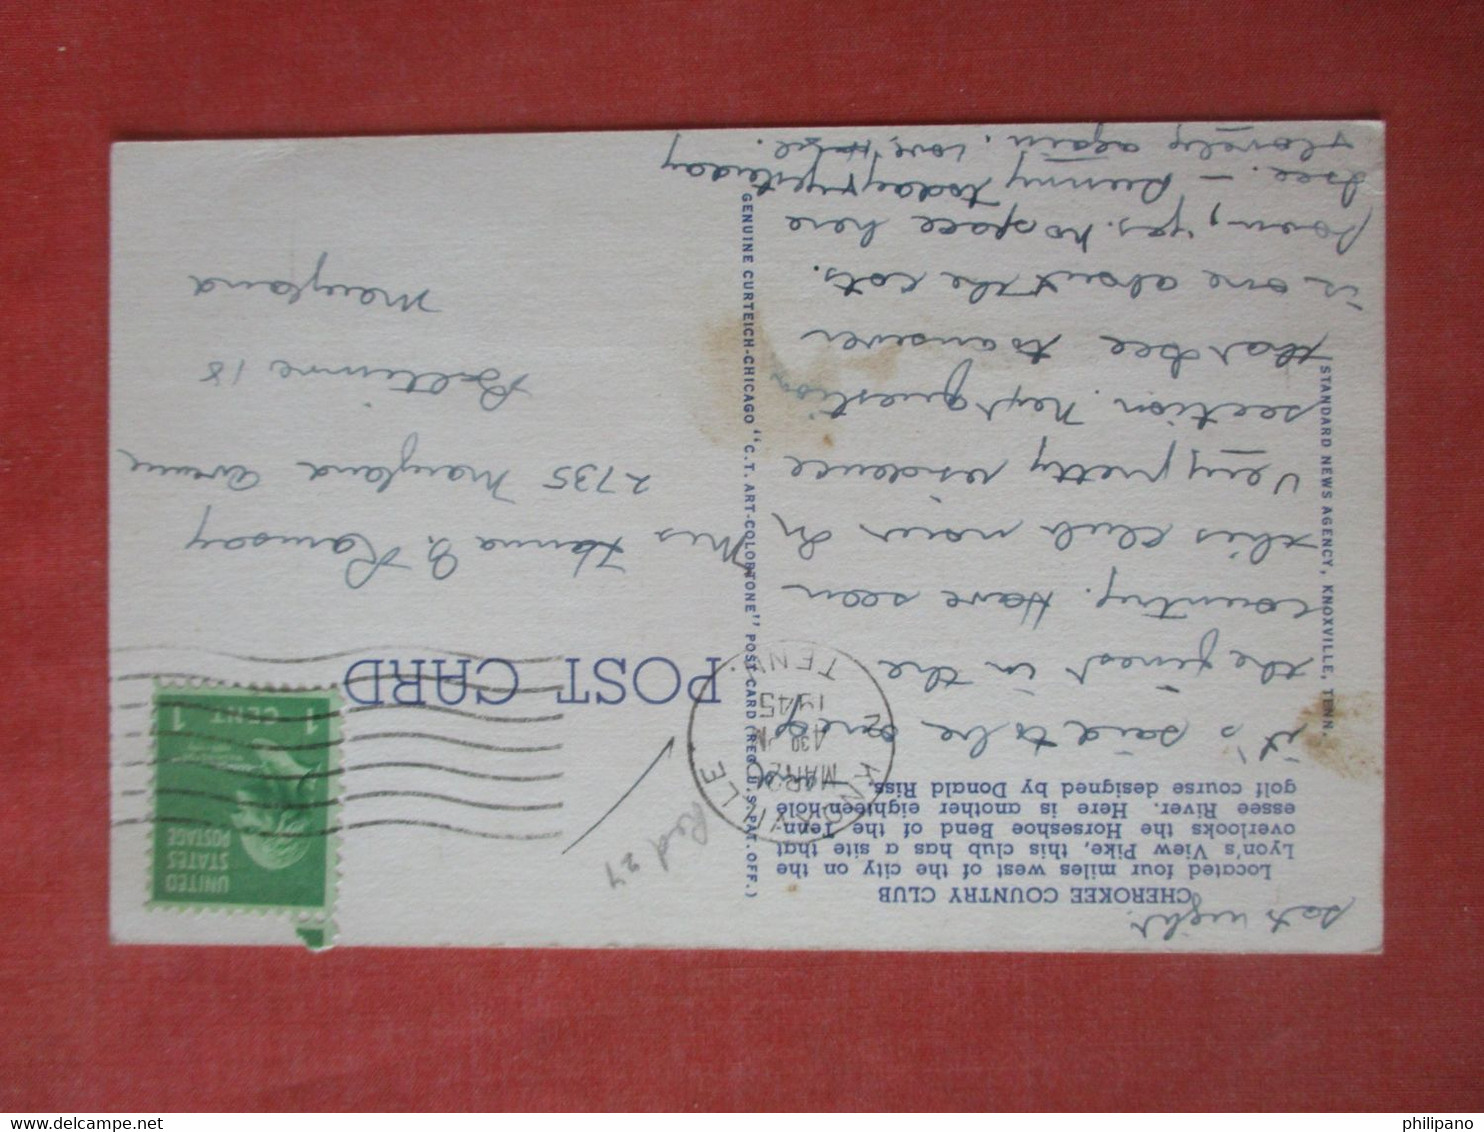 Sat night
CHEROKEE COUNTRY CLUB
Located four miles west of the city on the
Lyon's View Pike, this club has a site that
overlooks the Horseshoe Bend of the Tenn-
essee River. Here is another eighteen-hole
golf course designed by Donald Riss.
it's said to be one of
the finest in the
country. Have seen
this club now in
Very pretty residence
section. Next question
that the
is one about the cots.
yes. no space here
see. - Sunny today yesterday
& lovely again. Love,
STANDARD NEWS AGENCY, KNOXVILLE, TENN.
GENUINE CURTEICH-CHICAGO "C.T. ART-COLORTONE" POST CARD (REG. U.S. PAT. OFF.)
KNOXVILLE
MAR 20
4 30 PM
1945
TENN.
Rcd 27
POST CARD
UNITED
STATES
POSTAGE
1 CENT 1
Mrs Hanna G. Ramsay
2735 Maryland Avenue
Baltimore 18
Maryland
philipano
delcampe.net